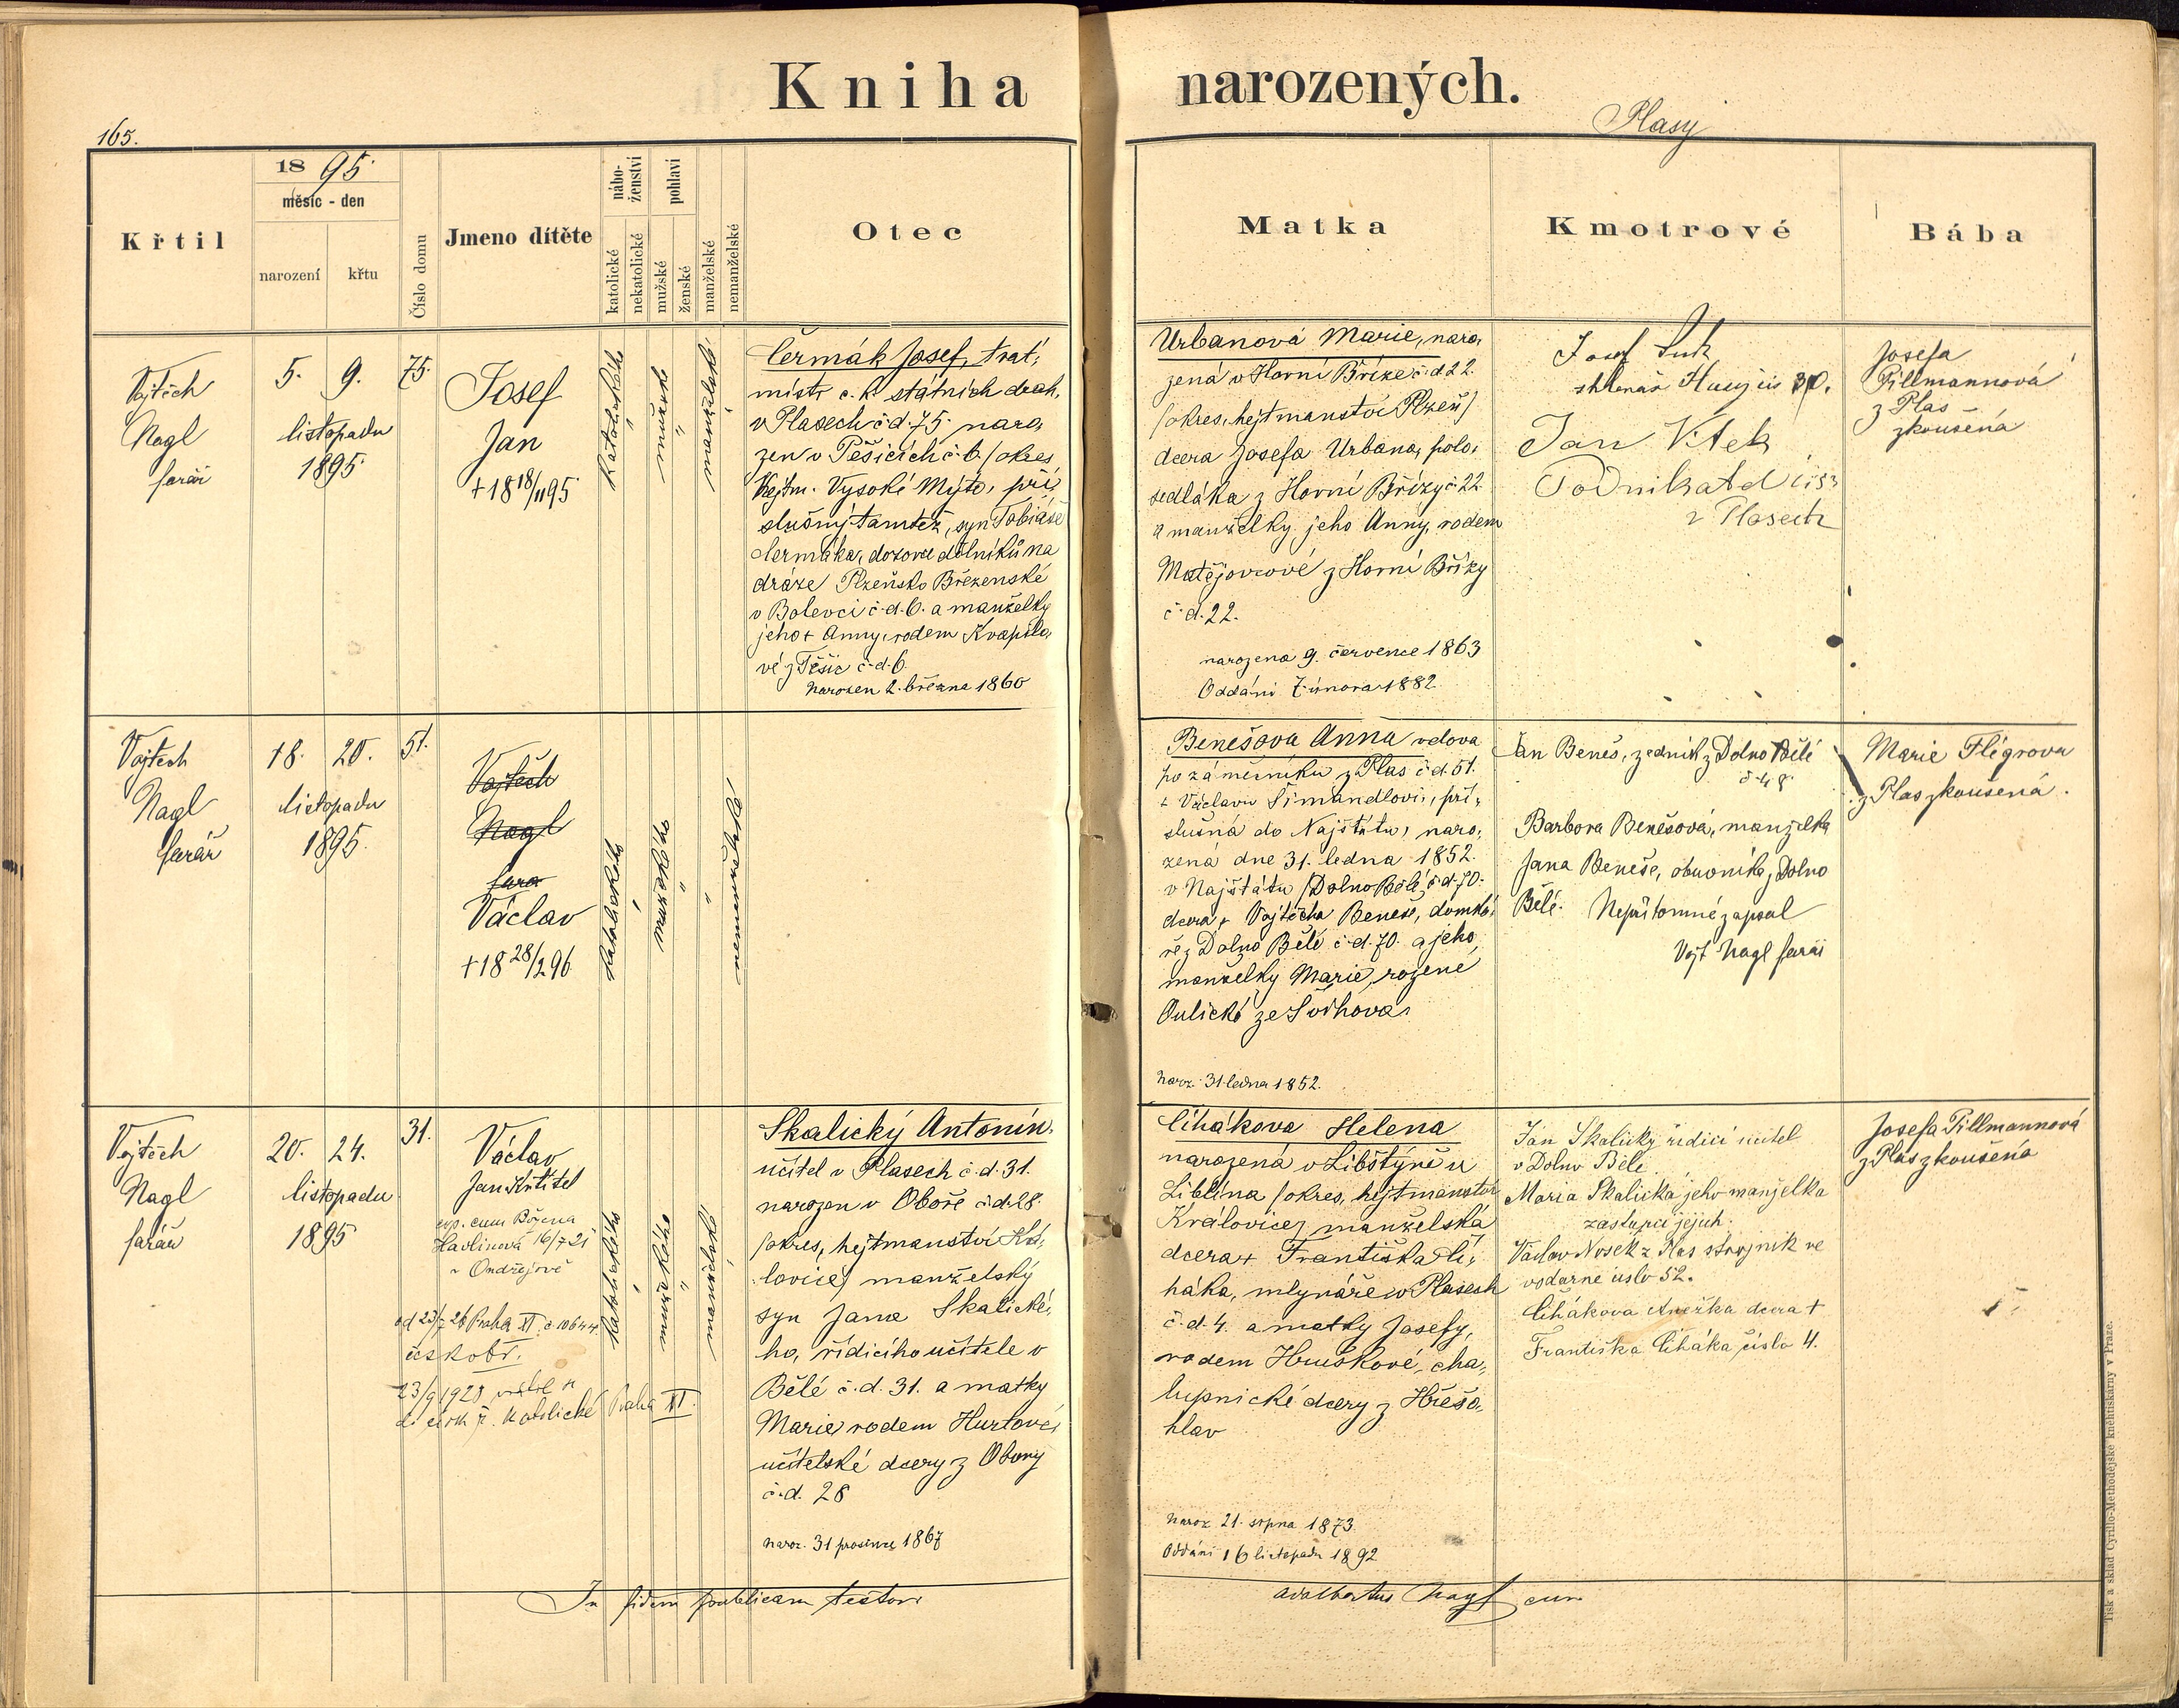 Kniha narozených.
165.
Plasy
1895
měsíc - den
Křtil
narození
křtu
Číslo domu
Jmeno dítěte
nábo-
ženství
katolické
nekatolické
pohlaví
mužské
ženské
manželské
nemanželské
Otec
Matka
Kmotrové
Bába
Vojtěch
Nagl
farář
5. 9.
listopadu
1895
75.
Josef
Jan
+18 18/11 95
katolického
mužské
manželské
Čermák Josef, trať,
mistr c. k. státních drah,
v Plasech č. d. 75. naro,
zen v Těšicích č. 6. /okres
Hejtm. Vysoké Mýto, pří,
slušný tamtéž, syn Tobiáše
Čermáka, dozorce dělníků na
dráze Plzeňsko Březenské
v Bolevci č. d. 6. a manželky
jeho + Anny, rodem Kvapilo,
vé z Těšic č. d. 6.
Narozen 2. března 1860
Urbanová Marie, naro,
zená v Horní Bříze č. d 22.
/okres, hejtmanství Plzeň/
dcera Josefa Urbana, polo,
sedláka z Horní Břízy č. 22.
a manželky jeho Anny, rodem
Matějovcové z Horní Břízy
č. d. 22.
narozena 9. července 1863
Oddáni 7. února 1882
Josef
Jan Vítek
v Plasech
Josefa
Pillmannová
z Plas
zkoušená
Vojtěch
Nagl
farář
18. 20.
listopadu
1895.
51.
Vojtěch
Nagl
fara
Václav
+18 28/2 96
katolického
mužského
nemanželské
Benešova Anna vdova
po zámečníku z Plas č. d. 51.
+ Václavu Šimandlovi, pří,
slušná do Najštátu, naro,
zená dne 31. ledna 1852.
v Najštátu /Dolno Bělé/ č. d. 70.
dcera + Vojtěcha Beneše, domká,
ře z Dolno Bělé č. d. 70. a jeho
manželky Marie, rozené
Oulické ze
Naroz. 31 ledna 1852.
Jan Beneš, zedník z Dolno Bělé
č. 48
Barbora Benešová, manželka
Jana Beneše, obuvníka z Dolno
Bělé. Nepřítomné zapsal
Vojt Nagl farář
Marie Flégrova
z Plas zkoušená.
Vojtěch
Nagl
farář
20. 24.
listopadu
1895
31.
Václav
Jan Křtitel
cop. cum Božena
Havlinová 16/7 21
v Ondřejově
od 23/7 26 Praha XI. č 10644
česko br.
23/9 1928 vrátil se
do církve ř. katolické Praha XI.
katolického
mužského
manželské
Skalický Antonín,
učitel v Plasech č. d. 31.
narozen v Oboře č. d. 28.
/okres, hejtmanství Krá,
lovice/ manželský
syn Jana Skalické,
ho, řídícího učitele v
Bělé č. d. 31. a matky
Marie rodem Hurtové,
učitelské dcery z Obory
č. d. 28
naroz. 31 prosince 1867
Čihákova Helena
narozená v Libštýně u
Liblína /okres, hejtmanství
Královice/ manželská
dcera + Františka Či,
háka, mlynáře v Plasech
č. d. 4. a matky Josefy,
rodem Hruškové, cha,
lupnické dcery z Hřešo,
hlav
naroz 21. srpna 1873
Oddáni 16 listopadu 1892
Jan Skalický řídící učitel
v Dolno Bělé.
Maria Skalická jeho manželka
zastupci jejich.
Václav Nosek z Plas strojník ve
vodárně číslo 52.
Čihákova Anežka dcera +
Františka Čiháka, číslo 4.
Josefa Pillmannová
z Plas zkoušená
In fidem publicam testor:
Adalbertus Nagl
Tisk a sklad Cyrillo-Methodějské knihtiskárny v Praze.